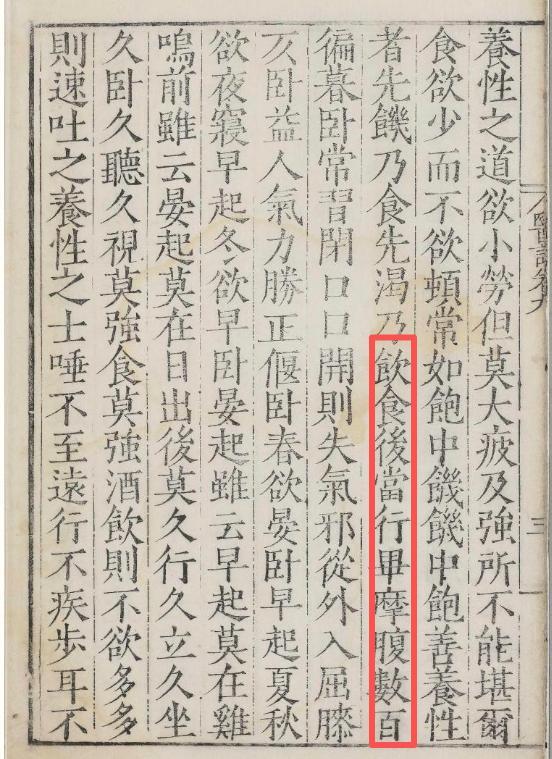 醫說卷九
三
養性之道欲小勞但莫大疲及強所不能堪爾
食欲少而不欲頓常如飽中饑饑中飽善養性
者先饑乃食先渴乃飲食後當行畢摩腹數百
徧暮卧常習閉口口開則失氣邪從外入屈膝
仄卧益人氣力勝正偃卧春欲晏卧早起夏秋
欲夜寢早起冬欲早卧晏起雖云早起莫在雞
鳴前雖云晏起莫在日出後莫久行久立久坐
久卧久聽久視莫強食莫強酒飲則不欲多多
則速吐之養性之士唾不至遠行不疾步耳不